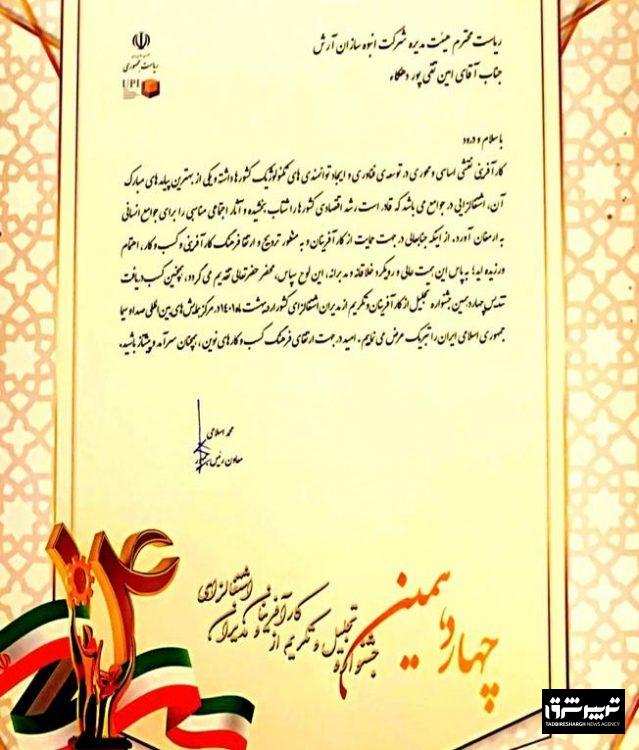 ریاست جمهوری
UPI
ریاست محترم هیئت مدیره شرکت انبوه سازان آرش
جناب آقای امین تقی پور دهکاء
با سلام و درود
کارآفرینی نقشی اساسی و محوری در توسعه ی فناوری و ایجاد توانمندی های تکنولوژیک کشورها داشته و یکی از بهترین پیامد های مبارک
آن، اشتغالزایی در جوامع می باشد که قادر است رشد اقتصادی کشورها را شتاب بخشیده و آثار اجتماعی مناسبی را برای جوامع انسانی
به ارمغان آورد. از اینکه جنابعالی در جهت حمایت از کارآفرینان و به منظور ترویج و ارتقا فرهنگ کارآفرینی و کسب و کار، اهتمام
ورزیده اید؛ به پاس این همت عالی و رویکرد خلاقانه و مدبرانه، این لوح سپاس، محضر حضرتعالی تقدیم می گردد، همچنین کسب دریافت
تندیس چهاردهمین جشنواره تجلیل از کارآفرینان و تکریم از مدیران اشتغالزای کشور اردیبهشت ماه ۱۴۰۱ در مرکز همایش های بین المللی صدا و سیما
جمهوری اسلامی ایران را تبریک عرض می نمایم. امید در جهت ارتقای فرهنگ کسب و کارهای نوین، همچنان سرآمد و پیشتاز باشید.
محمد اسلامی
معاون رئیس جمهور
۱۴
چهاردهمین
جشنواره
تجلیل و تکریم از
کارآفرینان و مدیران
اشتغالزای
تدبیر شرق
TADBIRESHARGH NEWS AGENCY